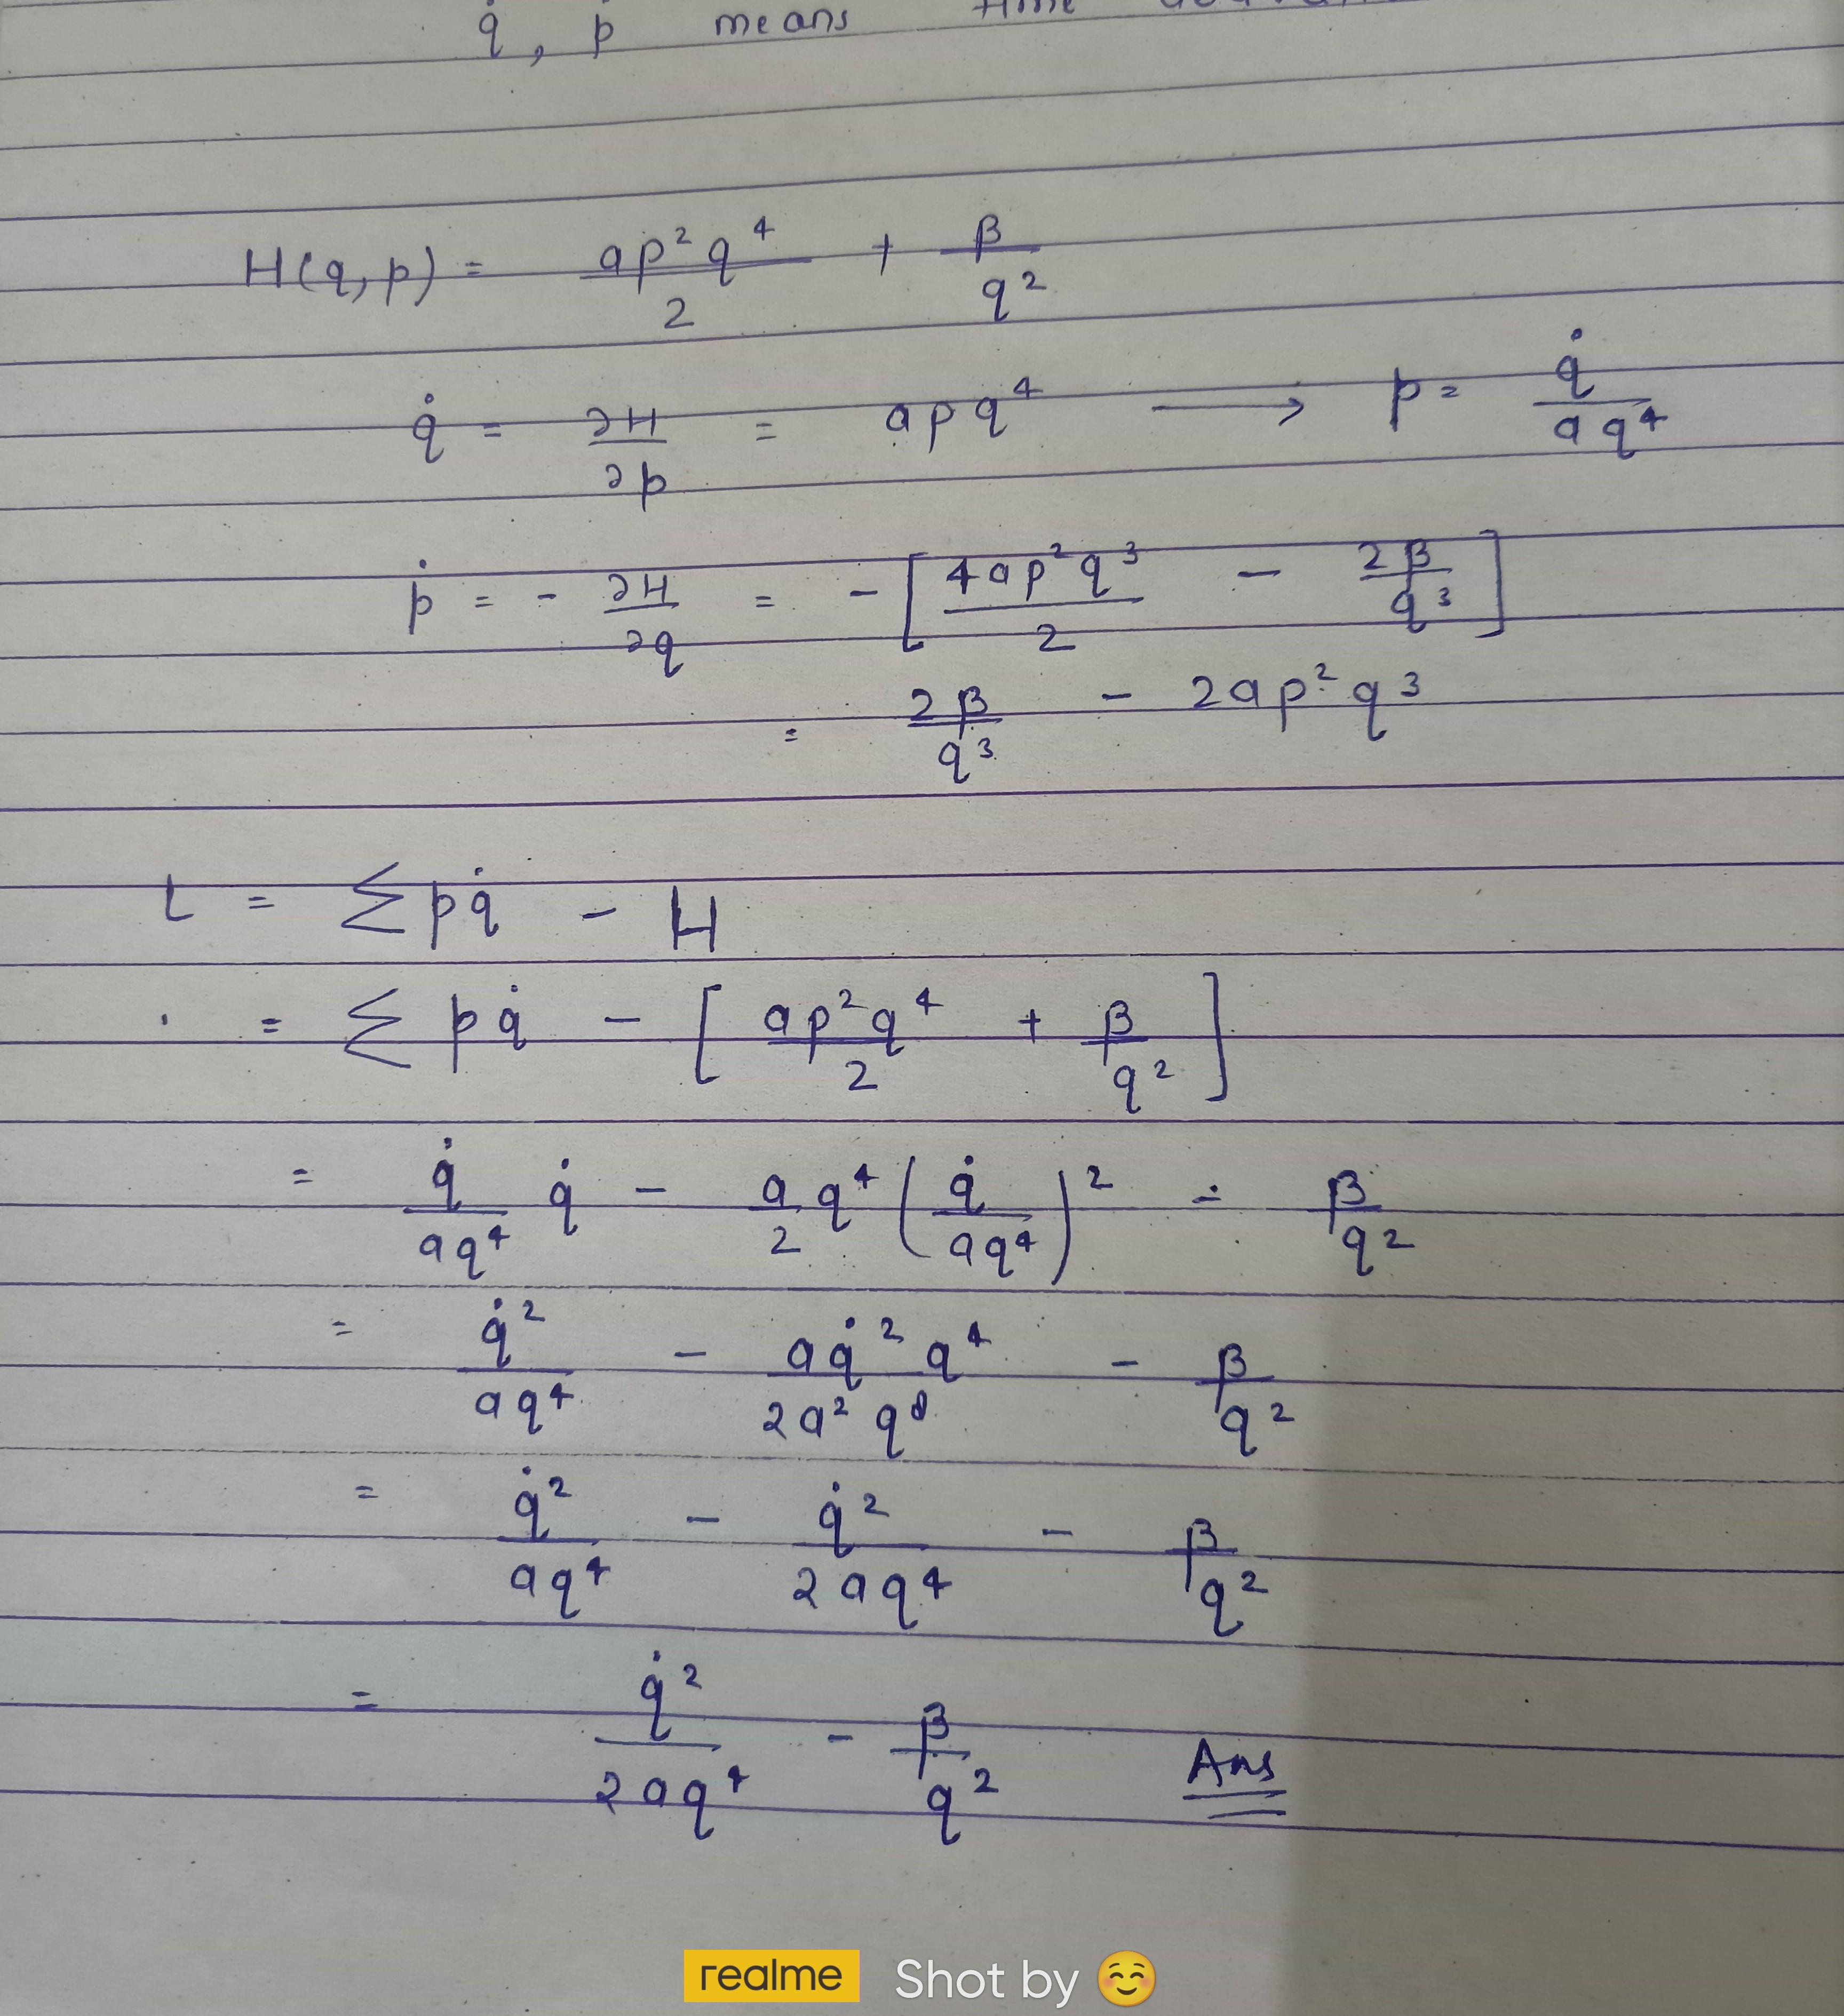 q̇, ṗ means time
H(q,p) = ap²q⁴/2 + β/q²
q̇ = ∂H/∂p = apq⁴ → p = q̇/aq⁴
ṗ = - ∂H/∂q = - [4ap²q³/2 - 2β/q³]
= 2β/q³ - 2ap²q³
L = Σpq̇ - H
= Σ pq̇ - [ap²q⁴/2 + β/q²]
= q̇/aq⁴ q̇ - a/2 q⁴ (q̇/aq⁴)² - β/q²
= q̇²/aq⁴ - aq̇²q⁴/2a²q⁸ - β/q²
= q̇²/aq⁴ - q̇²/2aq⁴ - β/q²
= q̇²/2aq⁴ - β/q² Ans
realme Shot by 😊